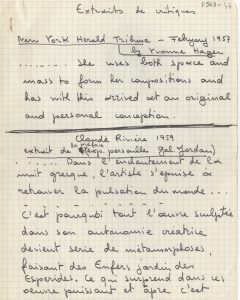 F963-47
Extraits de critiques
New York Herald Tribune - February 1957
by Yvonne Hagen
....... She uses both space and
mass to form her compositions and
has with this arrived at an original
and personal conception.
Claude Rivière 1959
extrait de expo. personnelle Gal. Jordan)
...... Dans l'enchantement de la
nuit grecque, l'artiste s'épuise à
retrouver la pulsation du monde....
C'est pourquoi tout l'œuvre sculptée
dans son autonomie creatrice
devient serie de métamorphoses,
faisant des Enfers jardin des
Esperides. Ce qui surprend dans cet
œuvre puissant et âpre c'est